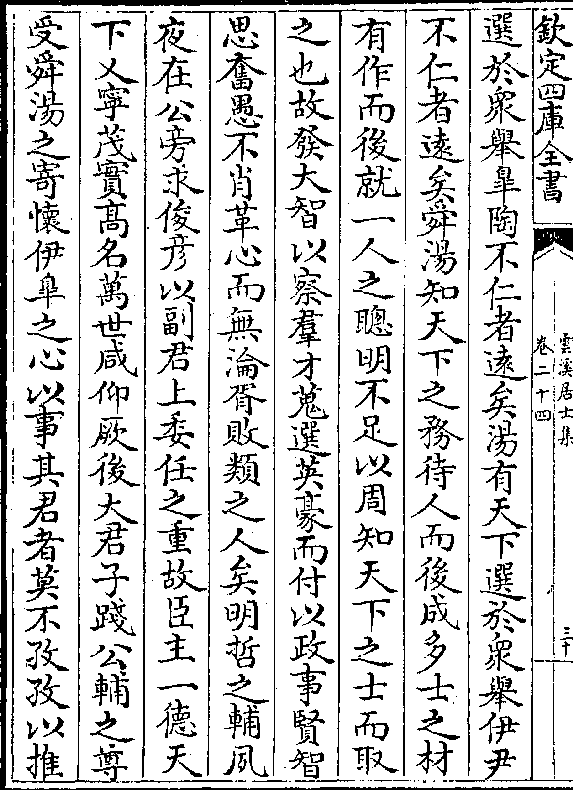 欽定四庫全書
雲溪居士集
卷二十四
三十
選於衆舉臯陶不仁者遠矣湯有天下選於衆舉伊尹
不仁者遠矣舜湯知天下之務待人而後成多士之材
有作而後就一人之聰明不足以周知天下之士而取
之也故發大智以察羣才蒐選英豪而付以政事賢智
思奮愚不肖革心而無淪胥敗類之人矣明哲之輔夙
夜在公旁求俊彦以副君上委任之重故臣主一德天
下乂寧茂實髙名萬世咸仰厥後大君子踐公輔之尊
受舜湯之寄懷伊臯之心以事其君者莫不孜孜以推